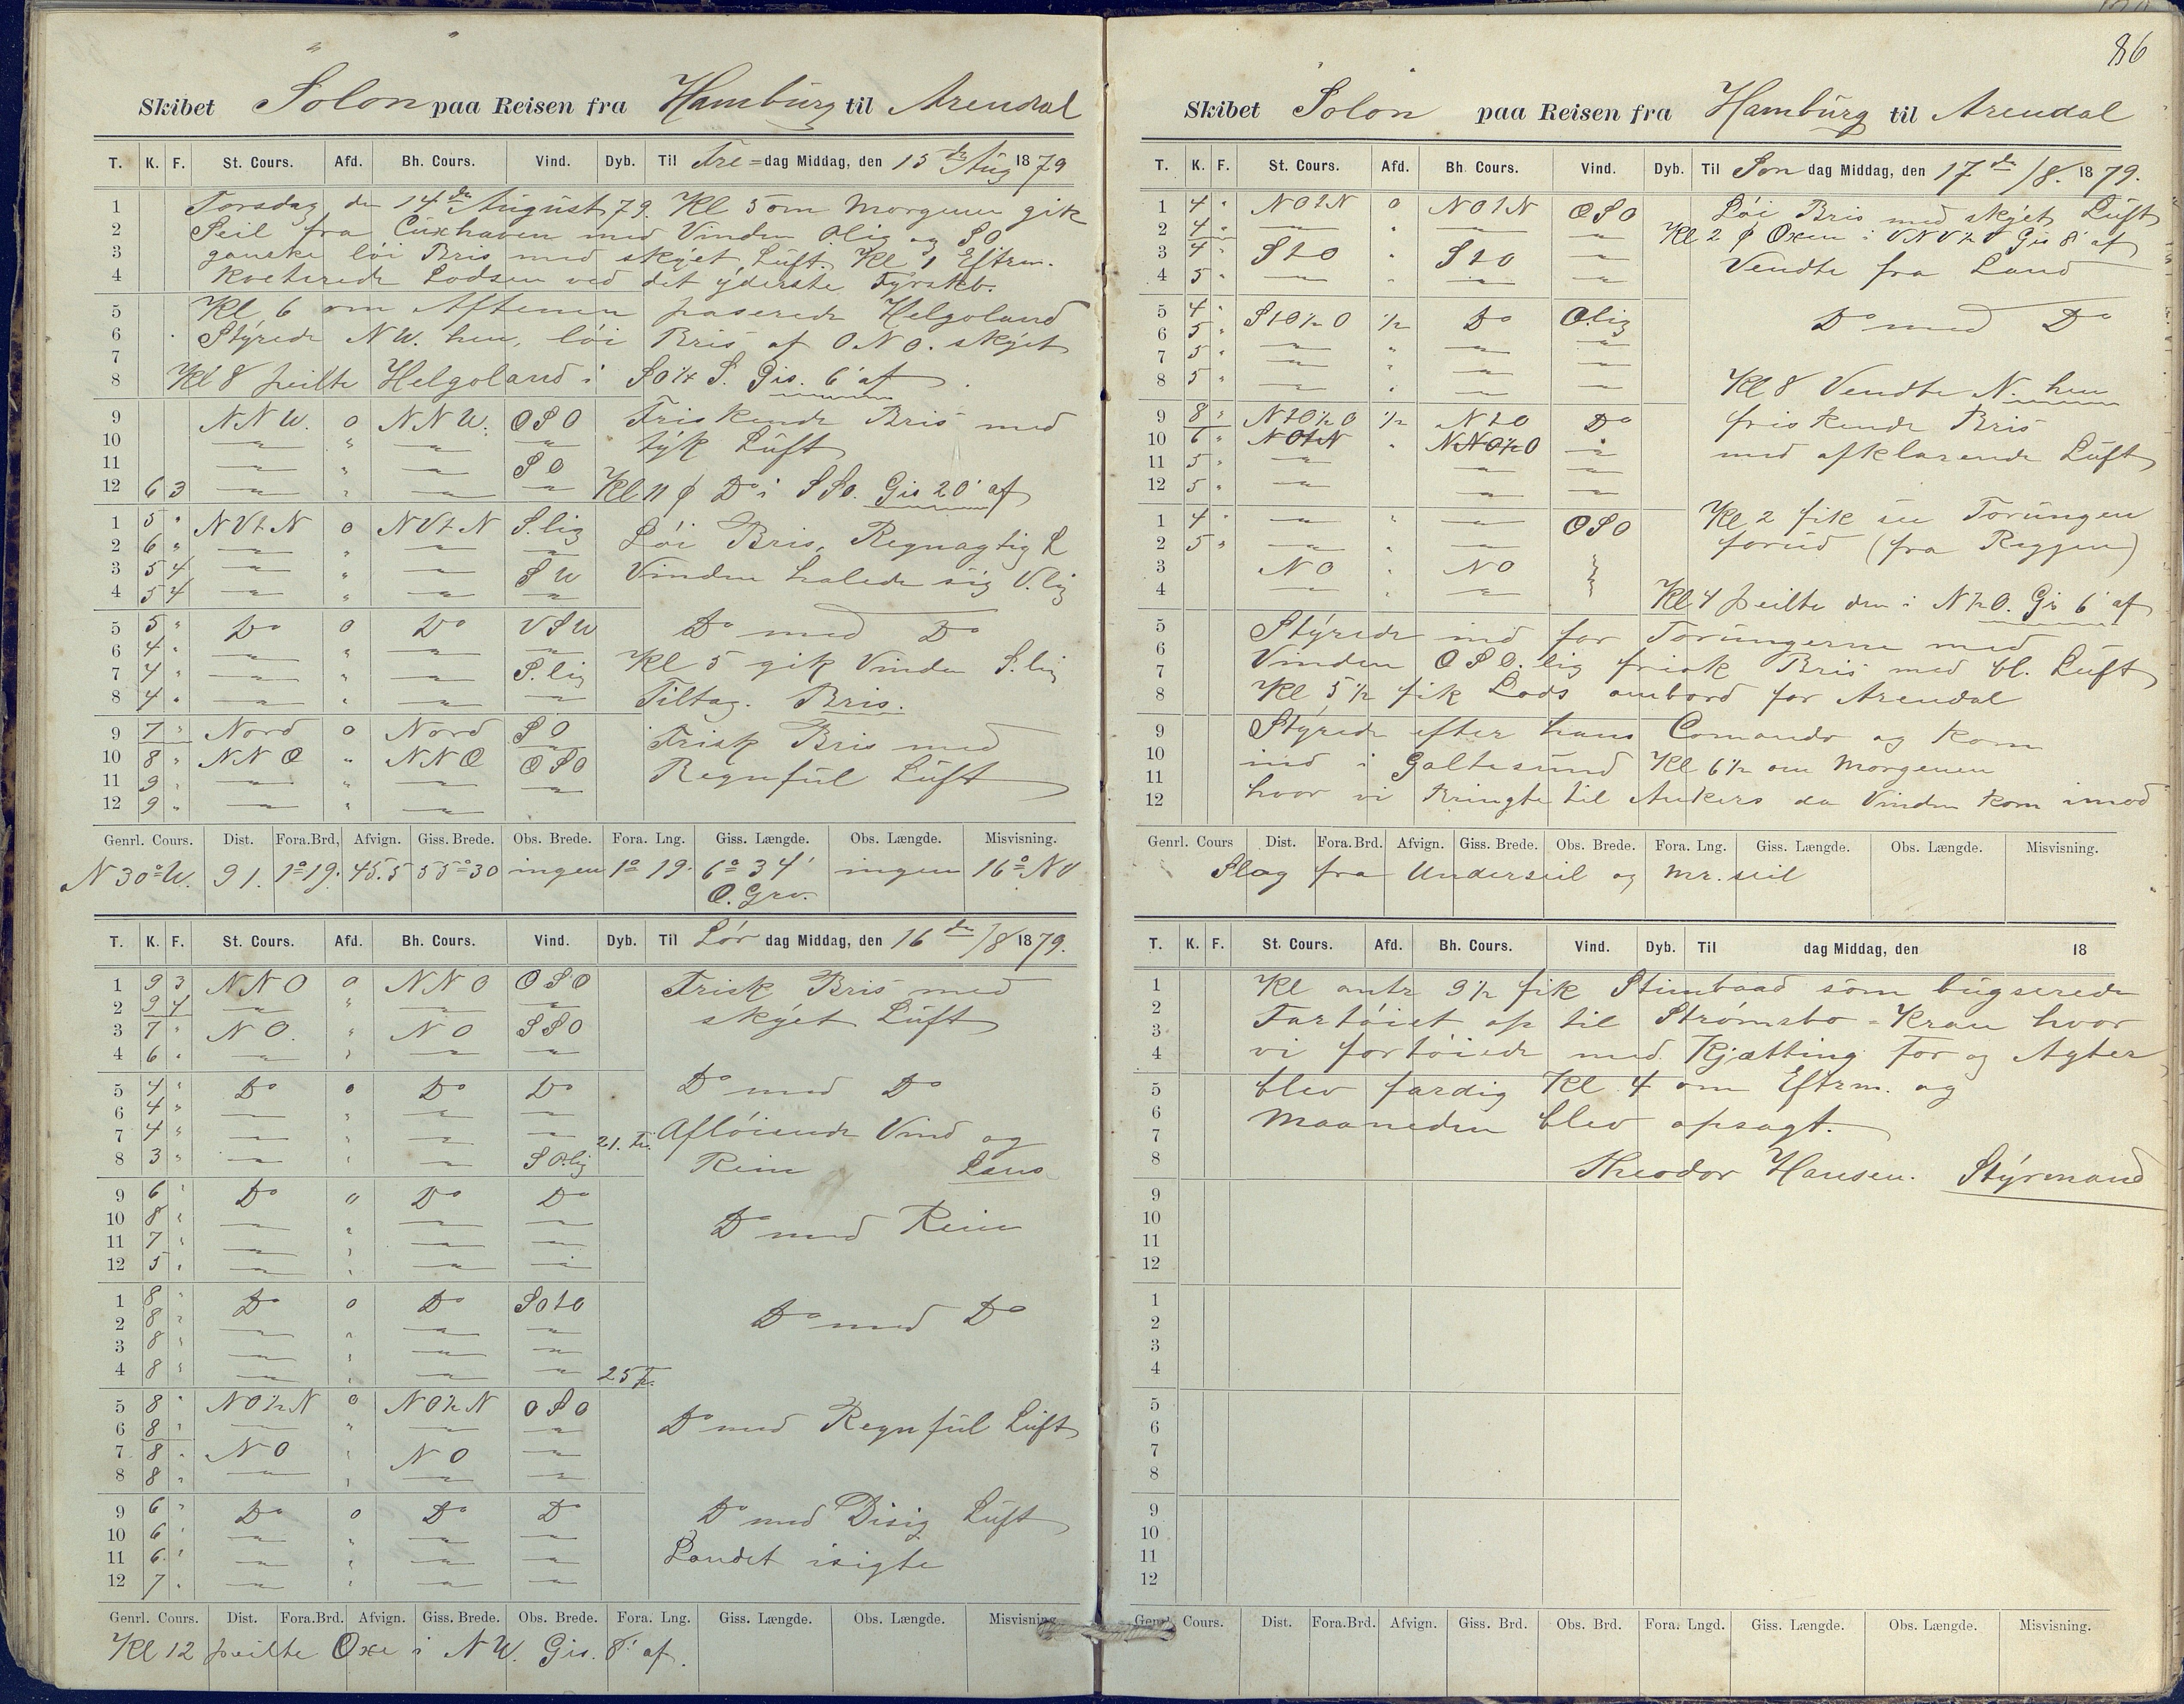 Skibet Solon paa Reisen fra Hamburg til Arendal
T. K. F. St. Cours. Afd. Bh. Cours. Vind. Dyb. Til Fre=dag Middag, den 15de Aug 1879
1 Torsdag den 14de August 79. Kl 5 om Morgenen gik
2 Seil fra Cuxhaven med Vinden Olig og SO
3 ganske løi Bris med skyet Luft. Kl 1 Eftrm.
4 kveterede Lodsen ved det yderste Fyrskb.
5 Kl 6 om Aftenen paserede Helgoland
6 Styrede NW. hen, løi Bris af ONO. skyet
7
8 Kl 8 peilte Helgoland i SO¼S. Gis. 6' af.
9 NNW. 0 NNW. OSO Friskende Bris med
10 — " — — tyk Luft
11 — " — SO
12 6 3 — " — — Kl 11 ϕ Do i SSO. Gis 20' af
1 5 " NVtN 0 NVtN S.lig Løi Bris, Regnagtig L
2 6 " — " — —
3 5 4 — " — SW Vinden halede sig V.lig
4 5 4 — " — —
5 5 " Do 0 Do VSW Do med Do
6 4 " — " — —
7 4 " — " — S.lig Kl 5 gik Vinden S.lig
8 4 " — " — — Tiltag. Bris.
9 7 " Nord 0 Nord SO Frisk Bris med
10 8 " NNO " NNO OSO Regnful Luft
11 9 " — " — —
12 9 " — " —
Genrl. Cours. Dist. Fora.Brd, Afvign. Giss. Brede. Obs. Brede. Fora. Lng. Giss. Længde. Obs. Længde. Misvisning.
N 30°W. 91. 1°19. 45.5 55°30 ingen 1° 19. 6° 34' ingen 16° NV
O. Grv.
T. K. F. St. Cours. Afd. Bh. Cours. Vind. Dyb. Til Lør dag Middag, den 16de/8 1879.
1 9 3 NNO 0 NNO OSO Frisk Bris med
2 9 4 — " — — skyet Luft
3 7 " NO. " NO SSO
4 6 " — " — —
5 4 " Do 0 Do Do Do med Do
6 4 " — " — —
7 4 " — " — — 21. Fv. Afløiende Vind og
8 3 " — " — SO.lig Rein Lens
9 6 " Do 0 Do Do
10 8 " — " — — Do med Rein
11 7 " — " — —
12 5 " — " — —
1 8 " Do 0 Do SOtO Do med Do
2 8 " — " — —
3 8 " — " — —
4 8 " — " — — 25 Fv.
5 8 " NO½N 0 NO½N OSO
6 8 " — " — — Do med Regnful Luft
7 8 " NO " NO —
8 8 " — " — —
9 6 " Do 0 Do Do Do med Disig Luft
10 6 " — " — —
11 6 " — " — — Landet isigte
12 7 " — " — —
Genrl. Cours. Dist. Fora.Brd, Afvign. Giss. Brede. Obs. Brede. Fora. Lng. Giss. Længde. Obs. Længde. Misvisning
Kl 12 peilte Oxe i NW. Gis. 8' af.
86
Skibet Solon paa Reisen fra Hamburg til Arendal
T. K. F. St. Cours. Afd. Bh. Cours. Vind. Dyb. Til Søn dag Middag, den 17de/8. 1879.
1 4 " NOtN 0 NOtN OSO Løi Bris med skyet Luft
2 4 " — " — — Kl 2 ϕ Oxen i VNV½V Gis 8' af
3 4 " StO " StO — Vendte fra Land
4 5 " — " — —
5 4 " StO½O ½ Do O.lig Do med Do
6 5 " — " — —
7 5 " — " — —
8 5 " — " — — Kl 8 Vendte N. hen
9 8 " NtO½O ½ NtO Do friskende Bris
10 6 " NOtN " NNO½O — med afklarende Luft
11 5 " — — —
12 5 " — — —
1 4 " — " — OSO Kl 2 fik see Torungen
2 5 " — " — forud (fra Riggen)
3 NO " NO
4 — " — Kl 4 peilte den i N½O. Gis 6' af
5 Styrede ind for Torungerne med
6 Vinden OSO.lig frisk Bris med bl. Luft
7 Kl 5½ fik Lods ombord for Arendal
8
9 Styrede efter hans Comando og kom
10 ind i Galtesund Kl 6½ om Morgenen
11 hvor vi bringte til Ankers da Vinden kom imod
12
Genrl. Cours Dist. Fora.Brd. Afvign. Giss. Brede. Obs. Brede. Fora. Lng. Giss. Længde. Obs. Længde. Misvisning.
Slog fra Underseil og Mr. seil
T. K. F. St. Cours. Afd. Bh. Cours. Vind. Dyb. Til dag Middag, den 18
1 Kl antr 9½ fik Stimbaad som bugserede
2 Fartøiet op til Strømsbo=Kran hvor
3
4 vi fortøiede med Kjætting For og Agter
5 blev færdig Kl 4 om Eftrm. og
6 Maaneden blev opsagt.
7
8 Theodor Hansen. Styrmand
9
10
11
12
1
2
3
4
5
6
7
8
9
10
11
12
Genrl. Cours. Dist. Fora.Brd. Afvign. Giss. Brd. Obs. Brd. Fora. Lngd. Giss. Længde. Obs. Længde. Misvisning.